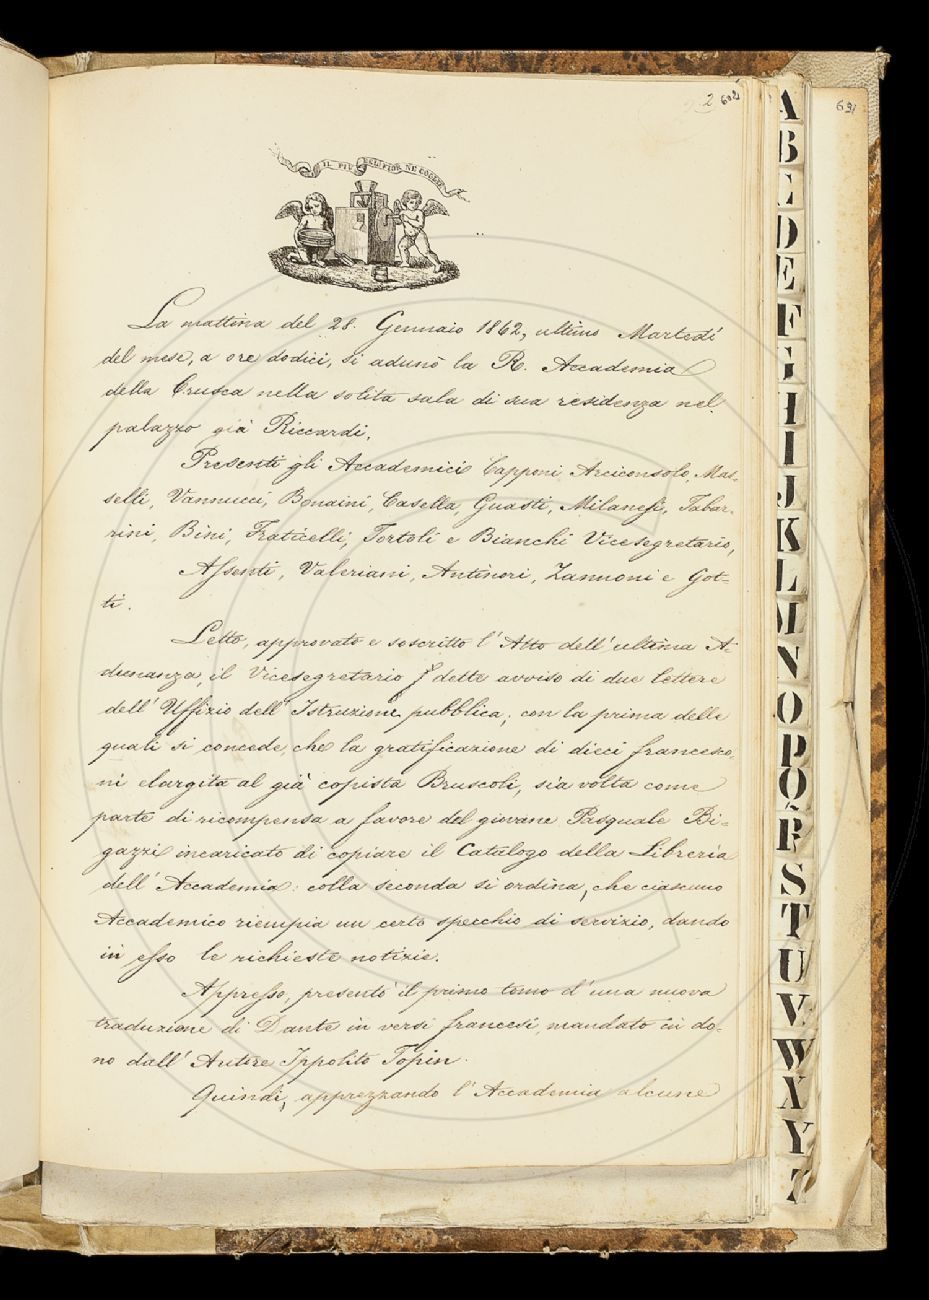 2 602
691
IL PIÙ BEL FIOR NE COGLIE
La mattina del 28. Gennaio 1862, ultimo Martedì
del mese, a ore dodici, si adunò la R. Accademia
della Crusca nella solita sala di sua residenza nel
palazzo già Riccardi.
Presenti gli Accademici Capponi Arciconsolo, Mas-
selli, Vannucci, Bonaini, Casella, Guasti, Milanesi, Tabar-
rini, Bini, Fraticelli, Tortoli e Bianchi Vicesegretario,
Assenti, Valeriani, Antinori, Zannoni e Got-
ti.
Letto, approvato e soscritto l'Atto dell'ultima A-
dunanza, il Vicesegretario dette avviso di due lettere
dell'Uffizio dell'Istruzione pubblica; con la prima delle
quali si concede, che la gratificazione di dieci francesco-
ni elargita al già copista Bruscoli, sia volta come
parte di ricompensa a favore del giovane Pasquale Bi-
gazzi incaricato di copiare il Catalogo della Libreria
dell'Accademia: colla seconda si ordina, che ciascuno
Accademico riempia un certo specchio di servizio, dando
in esso le richieste notizie.
Appresso, presentò il primo tomo d'una nuova
traduzione di Dante in versi francesi, mandato in do-
no dall'Autore Ippolito Topin.
Quindi, apprezzando l'Accademia alcune
A
B
C
D
E
F
G
H
I
J
K
L
M
N
O
P
Q
R
S
T
U
V
W
X
Y
Z